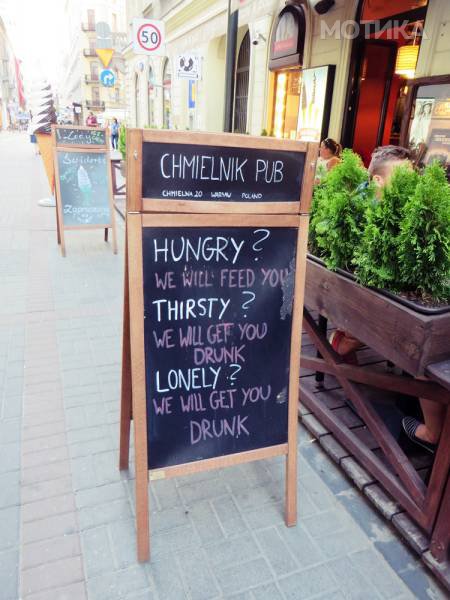 МОТИКА
50
CHMIELNIK PUB
CHMIELNA 20 WARSAW POLAND
HUNGRY?
WE WILL FEED YOU
THIRSTY?
WE WILL GET YOU
DRUNK
LONELY?
WE WILL GET YOU
DRUNK